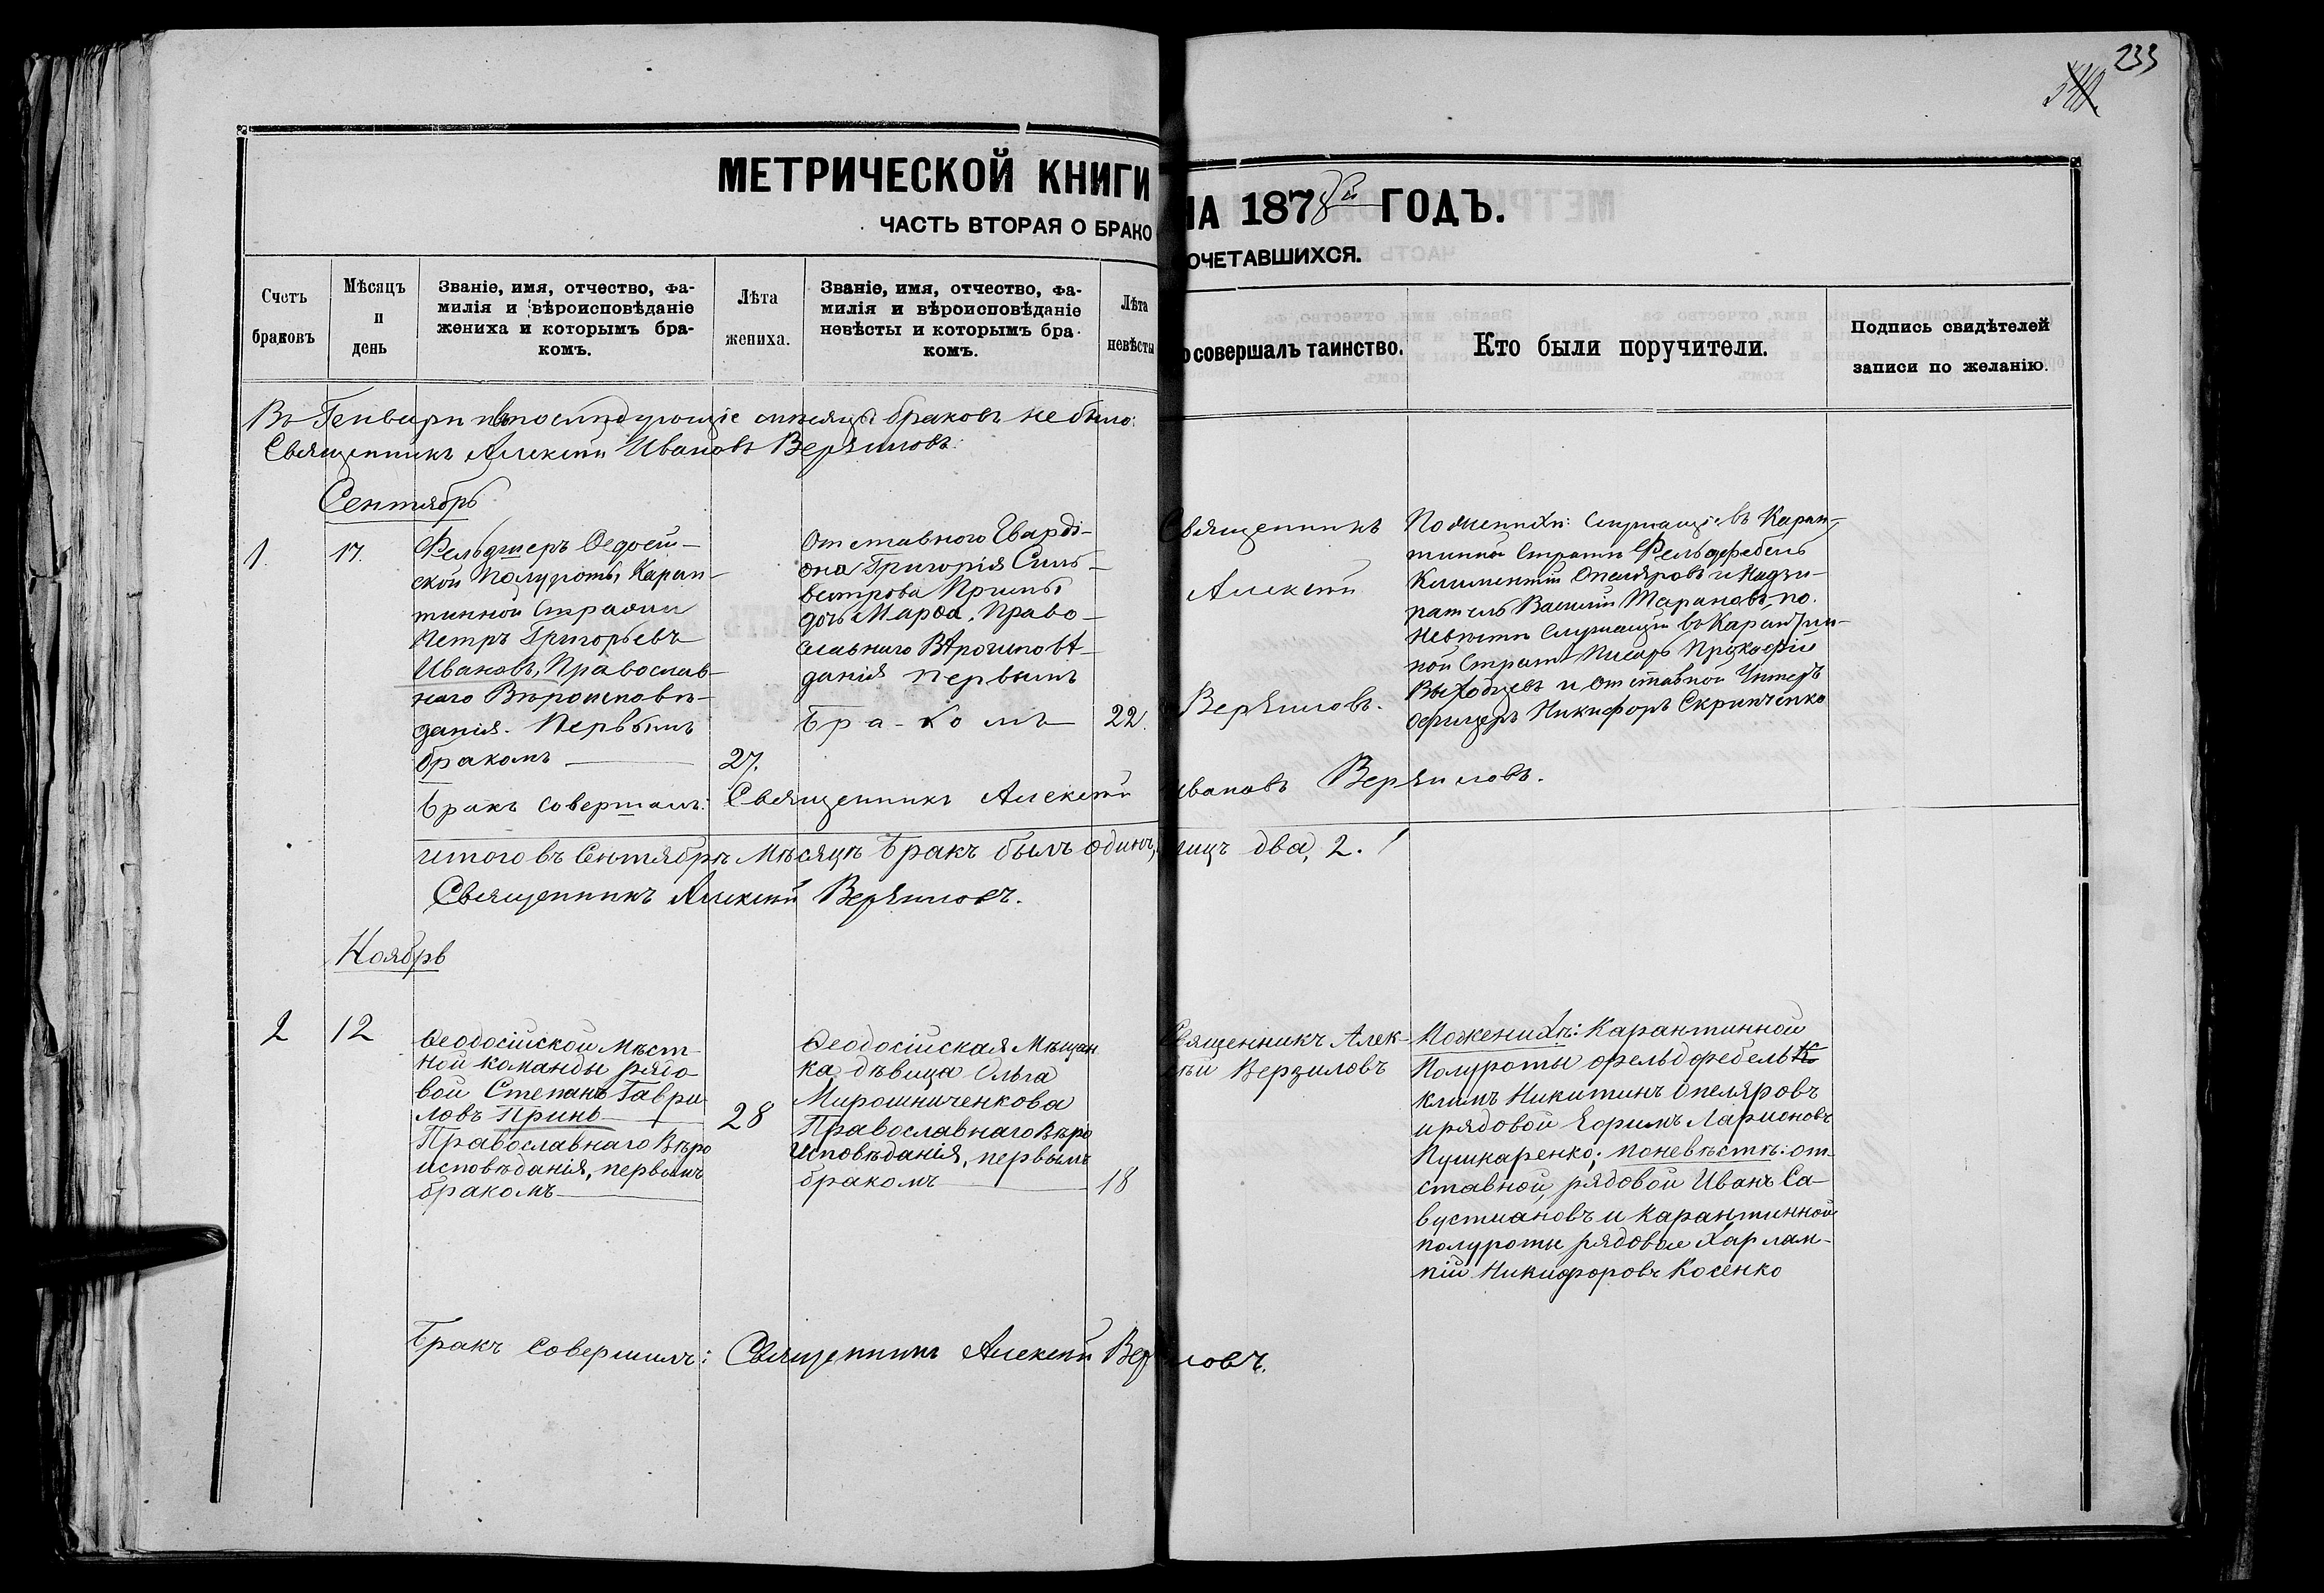 233
МЕТРИЧЕСКОЙ КНИГИ НА 1878й ГОДЪ.
ЧАСТЬ ВТОРАЯ О БРАКОСОЧЕТАВШИХСЯ.
Счетъ браковъ
Мѣсяцъ и день
Званіе, имя, отчество, фа-
милія и вѣроисповѣданіе
жениха и которымъ бра-
комъ.
Лѣта
жениха.
Званіе, имя, отчество, фа-
милія и вѣроисповѣданіе
невѣсты и которымъ бра-
комъ.
Лѣта
невѣсты
о совершалъ таинство.
Кто были поручители.
Подпись свидѣтелей
записи по желанію.
Въ Генвари и въ послѣдующіе мѣсяцы браковъ не было:
Священникъ Алексѣй Ивановъ Верзиловъ.
Сентябрь
1.
17.
Фельдшеръ Ѳедосій-
ской полуроты, Каран-
тинной Стражи
Петръ Григорьевъ
Ивановъ, Православ-
наго Вѣроисповѣ-
данія. Первымъ
бракомъ
27.
Отставного Гварді-
она Григорія Силь-
вестрова Принь
дочь Марѳа, Право-
славнаго Вѣроисповѣ-
данія первымъ
Бра-комъ
22.
Священникъ
Алексѣй
Верзиловъ.
По женихѣ: Служащіе въ Каран-
тинной Стражѣ Фельдфебель
Климентій Опеляровъ и Надзи-
ратель Василій Тарановъ, по
Невѣсте Служащій въ Карантин-
ной Стражѣ Писарь Прокофій
Выходцевъ и отставной Унтеръ
Офицеръ Никифоръ Скрипченко
Бракъ совершалъ: Священникъ Алексѣй Ивановъ Верзиловъ.
Итого въ Сентябрѣ Мѣсяцѣ Бракъ былъ одинъ, лицъ два, 2.
Священникъ Алексѣй Верзиловъ.
Ноябрь
2
12
Ѳеодосійской Мѣст-
ной команды рядо
вой Степанъ Гаври
ловъ Принь
Православнаго Вѣро
исповѣданія, первымъ
бракомъ
28
Ѳеодосійская Мѣщан
ка дѣвица Ольга
Мирошниченкова
Православнаго Вѣро
Исповѣданія, первымъ
бракомъ
18
Священникъ Алек-
сѣй Верзиловъ
По женихѣ: Карантинной
Полуроты фельдфебель К
Климъ Никитинъ Опеляровъ
и рядовой Ефимъ Ларионовъ
Пушкаренко; по невѣстѣ: от-
ставной, рядовой Иванъ Са-
вустиановъ и карантинной
полуроты рядовой Харлам-
пій Никифоровъ Косенко
Бракъ Совершилъ: Священникъ Алексѣй Верзиловъ.